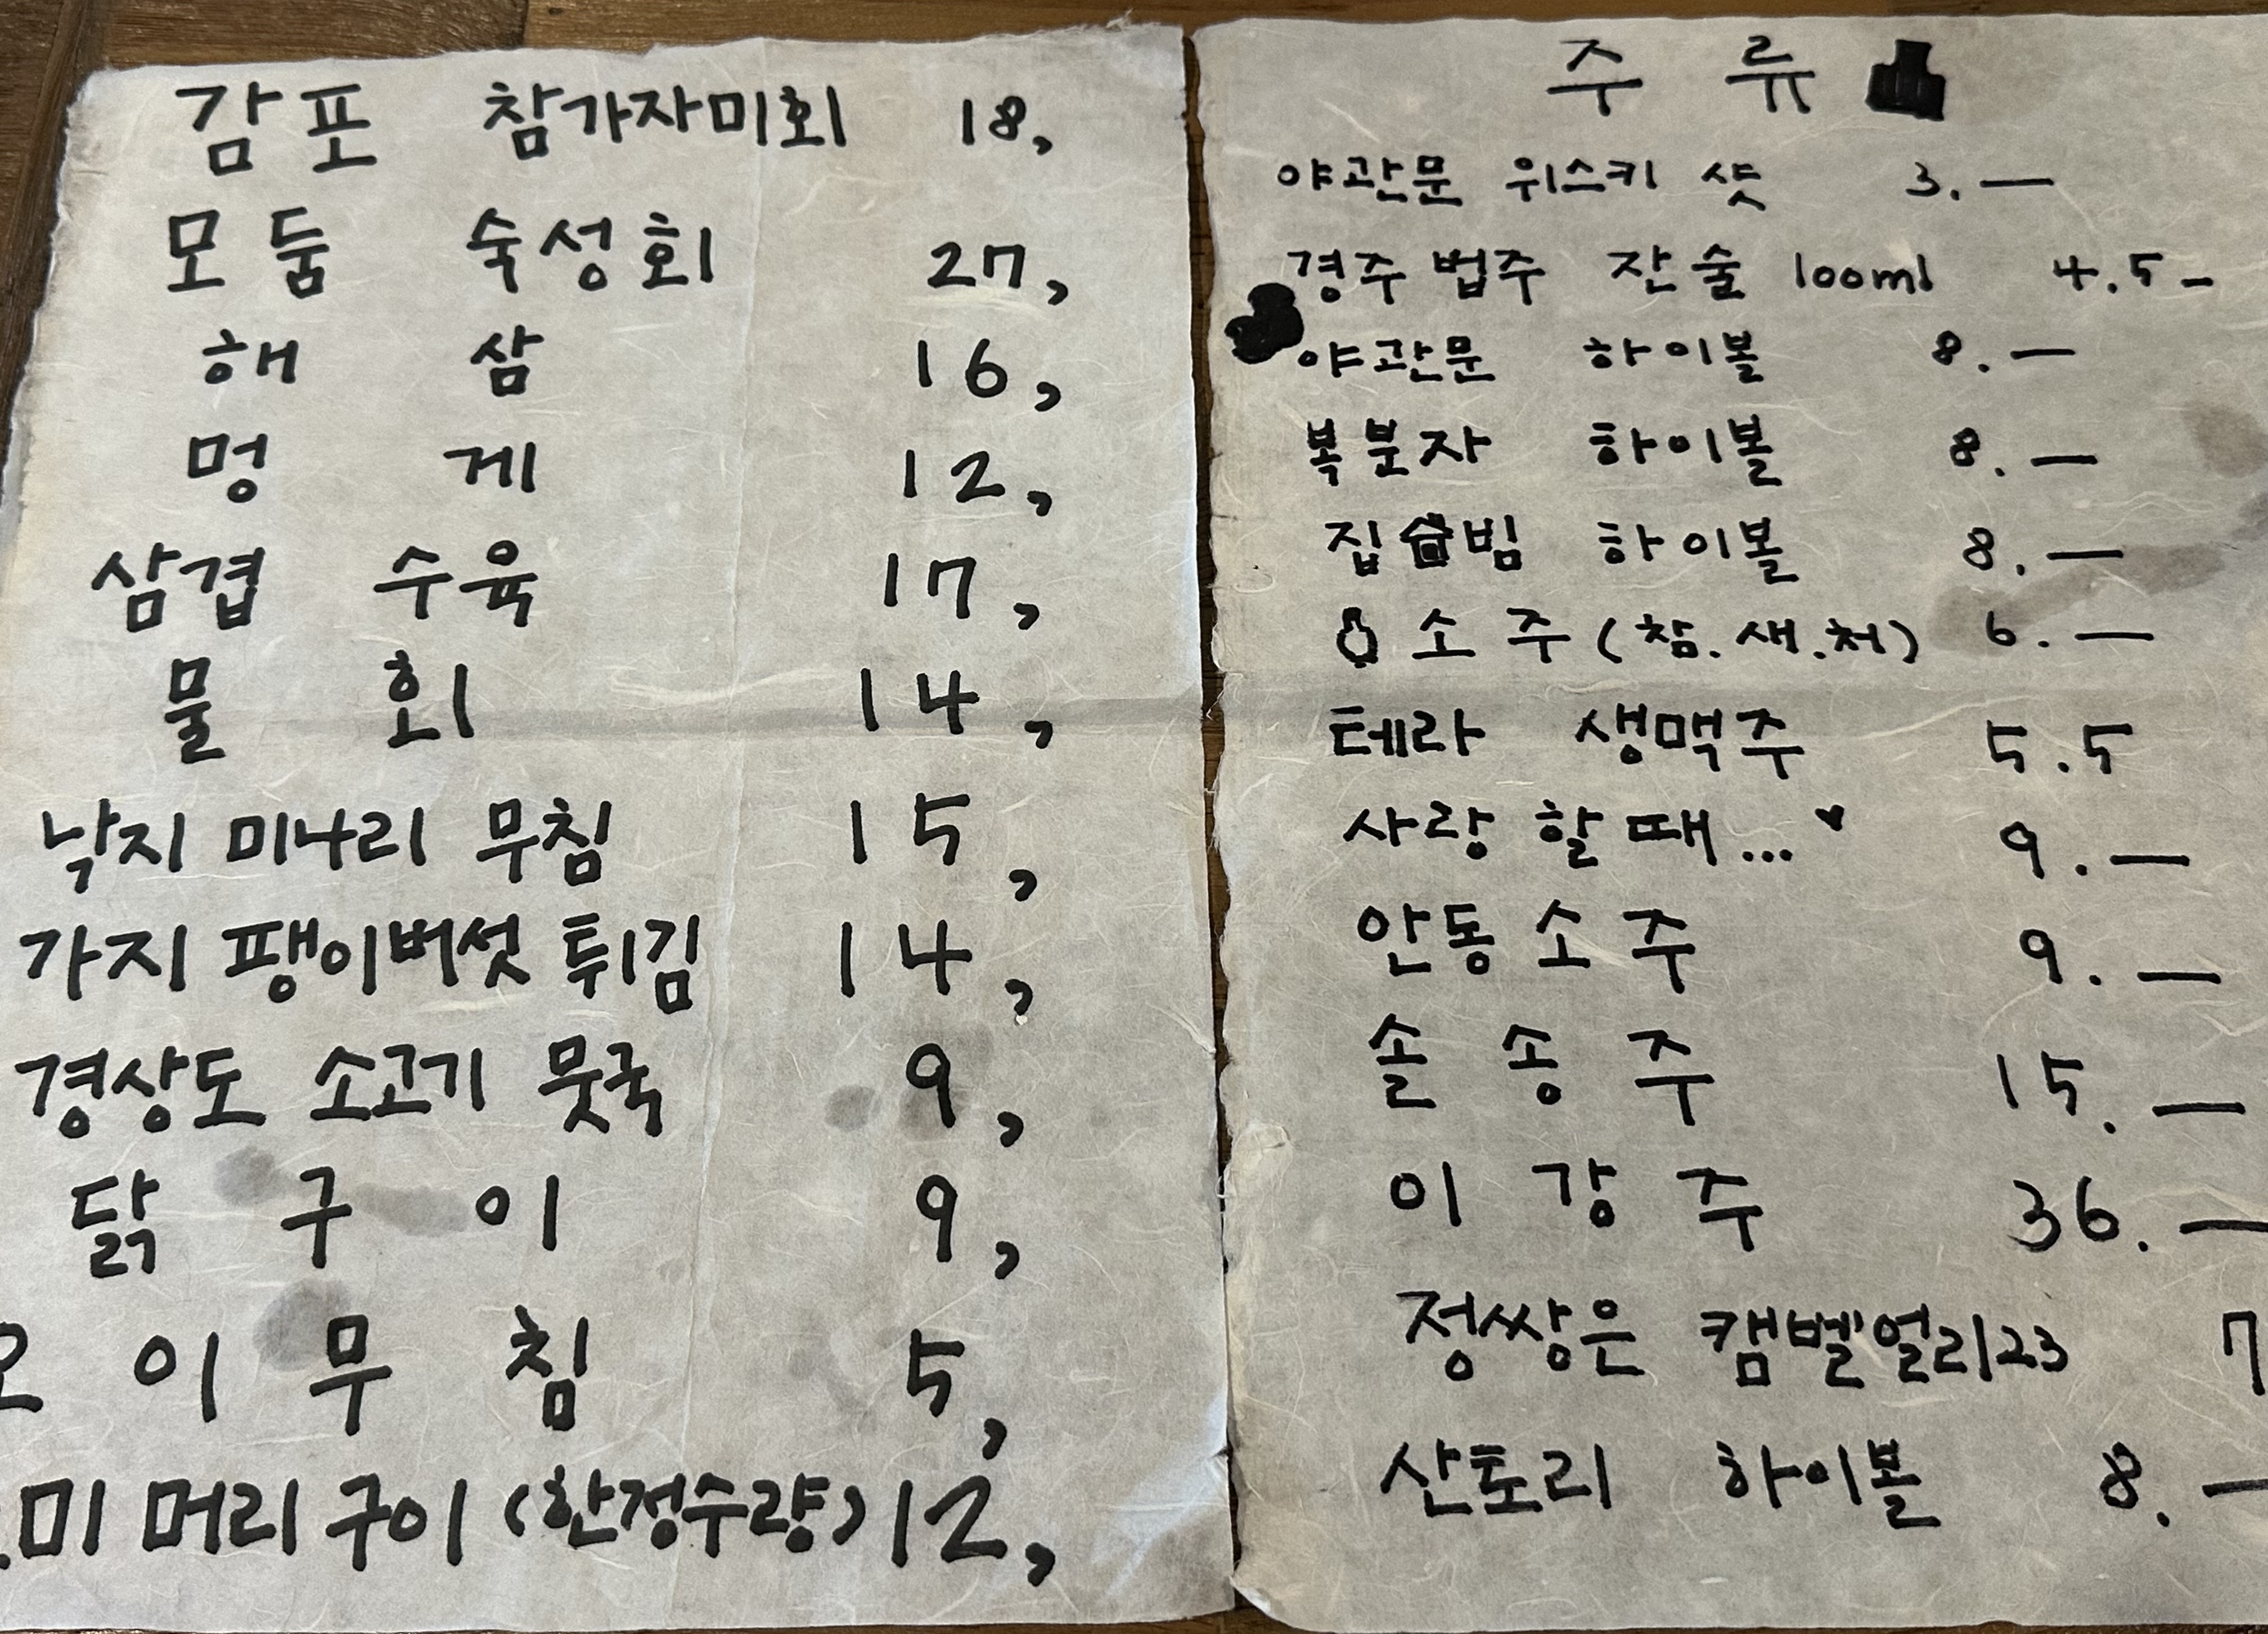 감포 참가자미회 18,
모둠 숙성회 27,
해 삼 16,
멍 게 12,
삼겹 수육 17,
물 회 14,
낙지 미나리 무침 15,
가지 팽이버섯 튀김 14,
경상도 소고기 뭇국 9,
닭 구 이 9,
오 이 무 침 5,
미 머리 구이 (한정수량) 12,
주 류
야관문 위스키 샷 3.—
경주 법주 잔술 100ml 4.5-
야관문 하이볼 8.—
복분자 하이볼 8.—
집 빔 하이볼 8.—
소주 (참.새.처) 6.—
테라 생맥주 5.5
사랑 할 때... ♥ 9.—
안동 소주 9.—
솔 송 주 15.—
이 강 주 36.—
정쌍은 캠벨얼리23 7
산토리 하이볼 8.—